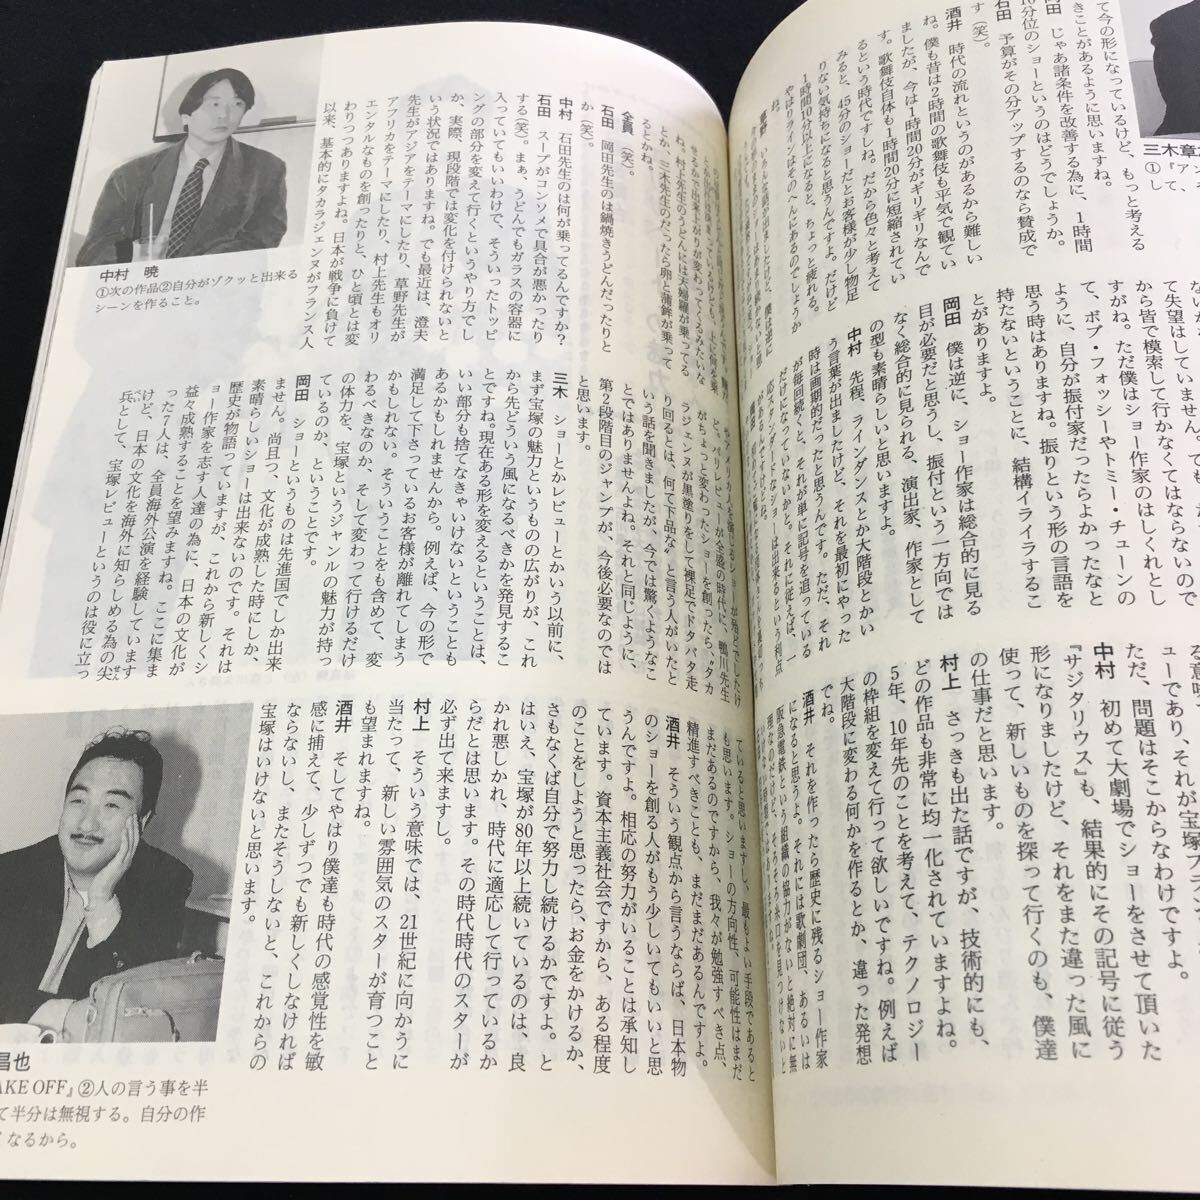 て今の形になっているけど、もっと考える
きことがあるように思いますね。
岡田　じゃあ諸条件を改善する為に、1時間
10分位のショーというのはどうでしょうか。
石田　予算がその分アップするのなら賛成で
す(笑)。
酒井　時代の流れというのがあるから難しい
ね。僕も昔は2時間の歌舞伎も平気で観てい
ましたが、今は1時間20分がギリギリなんで
す。歌舞伎自体も1時間20分に短縮されてい
るという時代ですしね。だから色々と考えて
みると、45分のショーだとお客様が少し物足
りない気持ちになると思うんですよ。だけど
1時間10分以上になると、ちょっと疲れる。
やはりラインはそのへんにあるのでしょうか
ね。
三木章
①『アン
て、
し
て失望はしていませんよ。
から皆で模索して行かなくてはならない
すがね。ただ僕はショー作家のはしくれとし
て、ボブ・フォッシーやトミー・チューンの
ように、自分が振付家だったらよかったなと
思う時はありますね。振りという形の言語を
持たないということに、結構イライラするこ
とがありますよ。
岡田　僕は逆に、ショー作家は総合的に見る
目が必要だと思うし、振付という一方向では
なく総合的に見られる、演出家、作家として
の型も素晴らしいと思いますが。
中村　先程、ラインダンスとか大階段とかい
う言葉が出ましたけど、それを最初にやった
時は画期的だったと思うんです。ただ、それ
が毎回続くと、それが単に記号を追っている
だけになっていないかと。それに従えば、一
応スタンダードなショーは出来るという利点
があるんですけどね。
る意味
ューであり、それが宝塚
ただ、問題はそこからなわけですよ。
中村　初めて大劇場でショーをさせて頂いた
『サジタリウス』も、結果的にその記号に従う
形になりましたけど、それをまた違った風に
使って、新しいものを探って行くのも、僕達
の仕事だと思います。
村上　さっきも出た話ですが、技術的にも、
どの作品も非常に均一化されていますよね。
5年、10年先のことを考えて、テクノロジー
の枠組を変えて行って欲しいですね。例えば
大階段に変わる何かを作るとか、違った発想
でね。
酒井　それを作ったら歴史に残るショー作家
になると思うよ。それには歌劇団、あるいは
阪急電鉄という組織の協力がないと絶対に無
中村　暁
①次の作品②自分がゾクッと出来る
シーンを作ること。
ね。村上先生のうどんには夫婦卵が乗ってる
とか、三木先生のだったら卵と蒲鉾が乗って
るとかね。
全員　(笑)。
石田　岡田先生のは鍋焼きうどんだったりと
か(笑)。
中村　石田先生のは何が乗ってるんですか?
石田　スープがコンソメで具合が悪かったり
する(笑)。まぁ、うどんでもガラスの容器に
入っていてもいいわけで、そういったトッピ
ングの部分を変えて行くというやり方でし
か、実際、現段階では変化を付けられないと
いう状況ではありますね。でも最近は、澄夫
先生がアジアをテーマにしたり、草野先生が
アフリカをテーマにしたり、村上先生もオリ
エンタルなものを創ったりと、ひと頃とは変
わりつつありますよね。日本が戦争に負けて
以来、基本的にタカラジェンヌがフランス人
やアメリカ人を演じるショーが殆どでしたけ
ど。パリレビューが全盛の時代に、鴨川先生
がちょっと変わったショーを創ったら、"タカ
ラジェンヌが黒塗りをして裸足でドタバタ走
り回るとは、何て下品な"と言う人がいたと
いう話を聞きましたが、今では驚くようなこ
とではありませんよね。それと同じように、
第2段階目のジャンプが、今後必要なのでは
と思います。
三木　ショーとかレビューとかいう以前に、
まず宝塚の魅力というものの広がりが、これ
から先どういう風になるべきかを発見するこ
とですね。現在ある形を変えるということは、
いい部分も捨てなきゃいけないということも
あるかもしれませんから。例えば、今の形で
満足して下さっているお客様が離れてしまう
かもしれない。そういうことをも含めて、変
わるべきなのか、そして変わって行けるだけ
の体力を、宝塚というジャンルの魅力が持っ
ているのか、ということです。
岡田　ショーというものは先進国でしか出来
ません。尚且つ、文化が成熟した時にしか、
素晴らしいショーは出来ないのです。それは
歴史が物語っていますが、これから新しくシ
ョー作家を志す人達の為に、日本の文化が
益々成熟することを望みますね。ここに集ま
った7人は、全員海外公演を経験しています
けど、日本の文化を海外に知らしめる為の尖
兵として、宝塚レビューというのは役に立っ
ていると思いますし、最もよい手段であると
も思います。ショーの方向性、可能性はまだ
まだあるのですから、我々が勉強すべき点、
精進すべきことも、まだまだあるんですよ。
酒井　そういう観点から言うならば、日本物
のショーを創る人がもう少しいてもいいと思
うんですよ。相応の努力がいることは承知し
ています。資本主義社会ですから、ある程度
のことをしようと思ったら、お金をかけるか、
さもなくば自分で努力し続けるかですよ。と
はいえ、宝塚が80年以上続いているのは、良
かれ悪しかれ、時代に適応して行っているか
らだとは思います。その時代時代のスターが
必ず出て来ますし。
村上　そういう意味では、21世紀に向かうに
当たって、新しい雰囲気のスターが育つこと
も望まれますね。
酒井　そしてやはり僕達も時代の感覚性を敏
感に捕えて、少しずつでも新しくしなければ
ならないし、またそうしないと、これからの
宝塚はいけないと思います。
昌也
AKE OFF』②人の言う事を半
て半分は無視する。自分の作
くなるから。